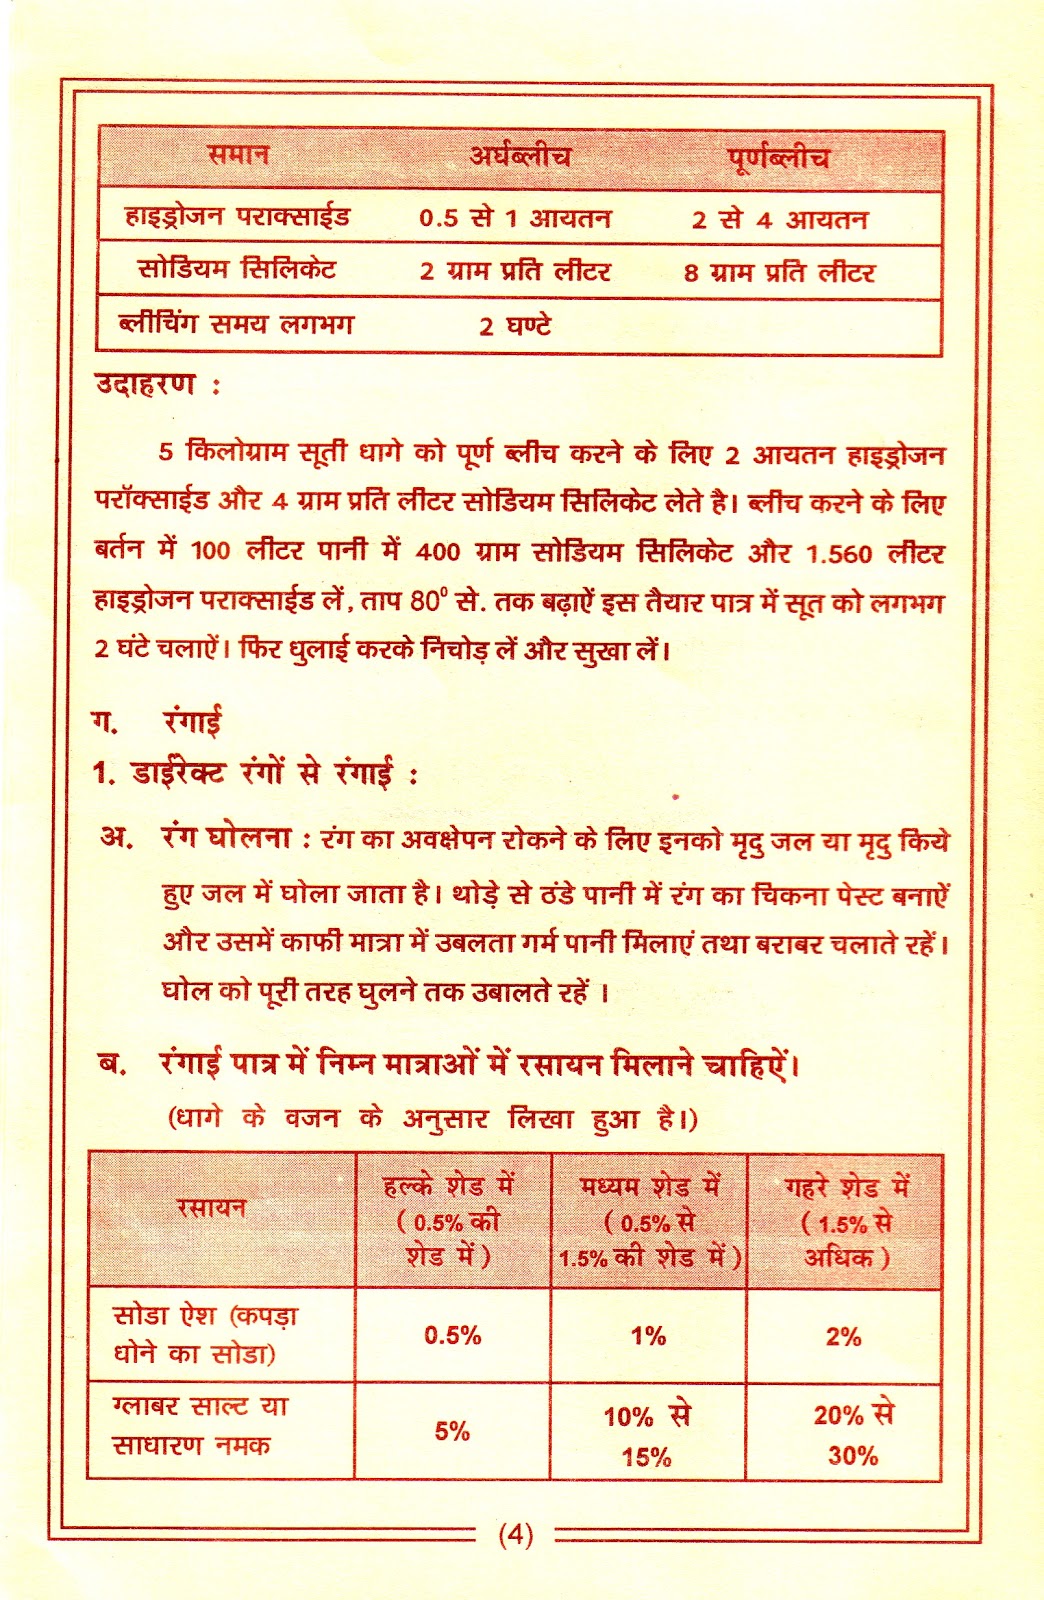 समान अर्घब्लीच पूर्णब्लीच
हाइड्रोजन पराक्साईड 0.5 से 1 आयतन 2 से 4 आयतन
सोडियम सिलिकेट 2 ग्राम प्रति लीटर 8 ग्राम प्रति लीटर
ब्लीचिंग समय लगभग 2 घण्टे
उदाहरण :
5 किलोग्राम सूती धागे को पूर्ण ब्लीच करने के लिए 2 आयतन हाइड्रोजन
परॉक्साईड और 4 ग्राम प्रति लीटर सोडियम सिलिकेट लेते है। ब्लीच करने के लिए
बर्तन में 100 लीटर पानी में 400 ग्राम सोडियम सिलिकेट और 1.560 लीटर
हाइड्रोजन पराक्साईड लें, ताप 80⁰ से. तक बढ़ाऐं इस तैयार पात्र में सूत को लगभग
2 घंटे चलाऐं। फिर धुलाई करके निचोड़ लें और सुखा लें।
ग. रंगाई
1. डाईरेक्ट रंगों से रंगाई :
अ. रंग घोलना : रंग का अवक्षेपन रोकने के लिए इनको मृदु जल या मृदु किये
हुए जल में घोला जाता है। थोड़े से ठंडे पानी में रंग का चिकना पेस्ट बनाऐं
और उसमें काफी मात्रा में उबलता गर्म पानी मिलाएं तथा बराबर चलाते रहें।
घोल को पूरी तरह घुलने तक उबालते रहें ।
ब. रंगाई पात्र में निम्न मात्राओं में रसायन मिलाने चाहिऐं।
(धागे के वजन के अनुसार लिखा हुआ है।)
रसायन
हल्के शेड में
( 0.5% की
शेड में )
मध्यम शेड में
( 0.5% से
1.5% की शेड में )
गहरे शेड में
( 1.5% से
अधिक )
सोडा ऐश (कपड़ा
धोने का सोडा)
0.5%
1%
2%
ग्लाबर साल्ट या
साधारण नमक
5%
10% से
15%
20% से
30%
(4)